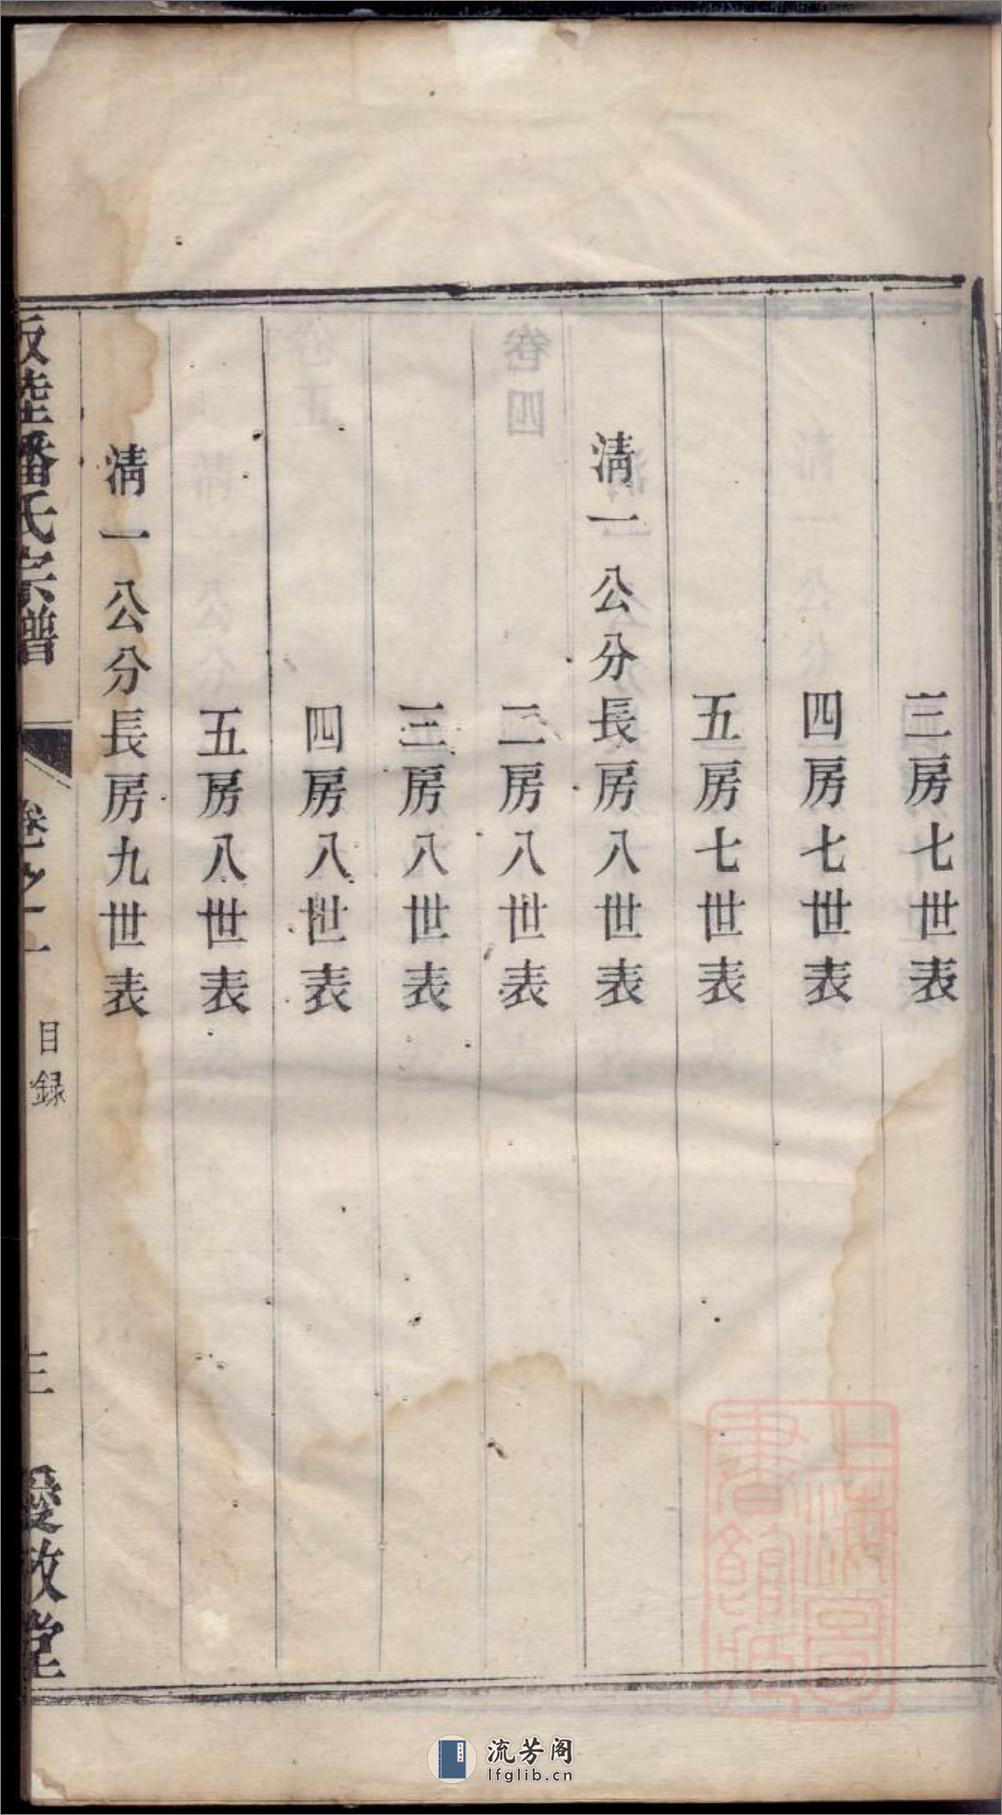 三房七世表
四房七世表
五房七世表
清一公分長房八世表
卷四
二房八世表
三房八世表
四房八世表
五房八世表
清一公分長房九世表
潘氏宗譜
卷之一
目録
三
愛敬堂
上海圖書館藏
流芳阁
lfglib.cn